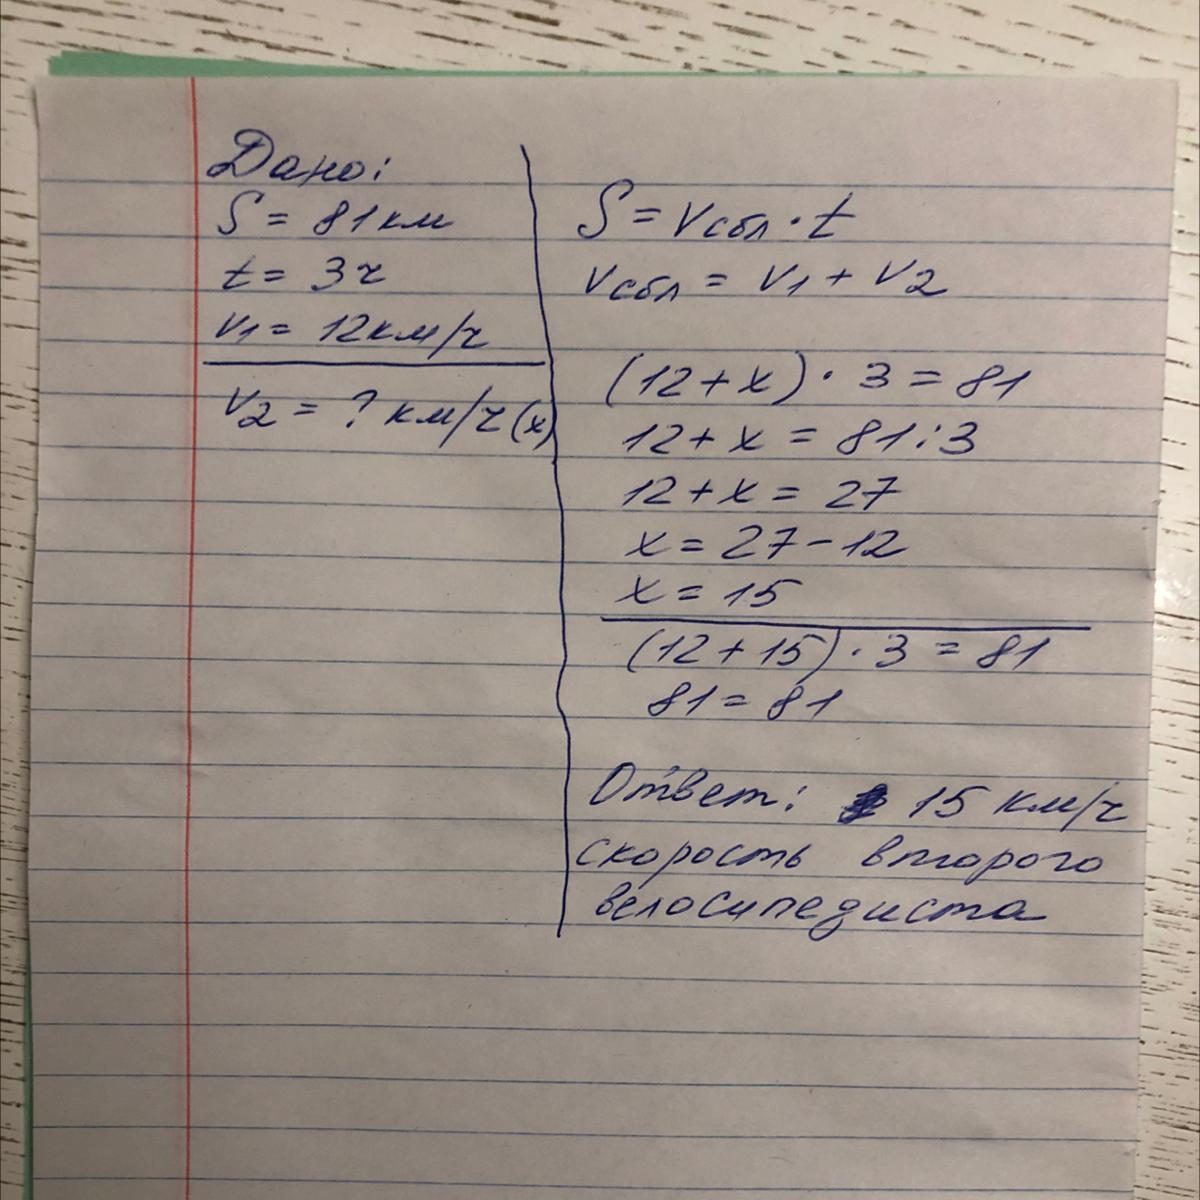 Дано:
S = 81 км
t = 3 ч
v1 = 12 км/ч
v2 = ? км/ч (x)
S = vсбл · t
vсбл = v1 + v2
(12 + x) · 3 = 81
12 + x = 81 : 3
12 + x = 27
x = 27 - 12
x = 15
(12 + 15) · 3 = 81
81 = 81
Ответ: 15 км/ч
скорость второго
велосипедиста